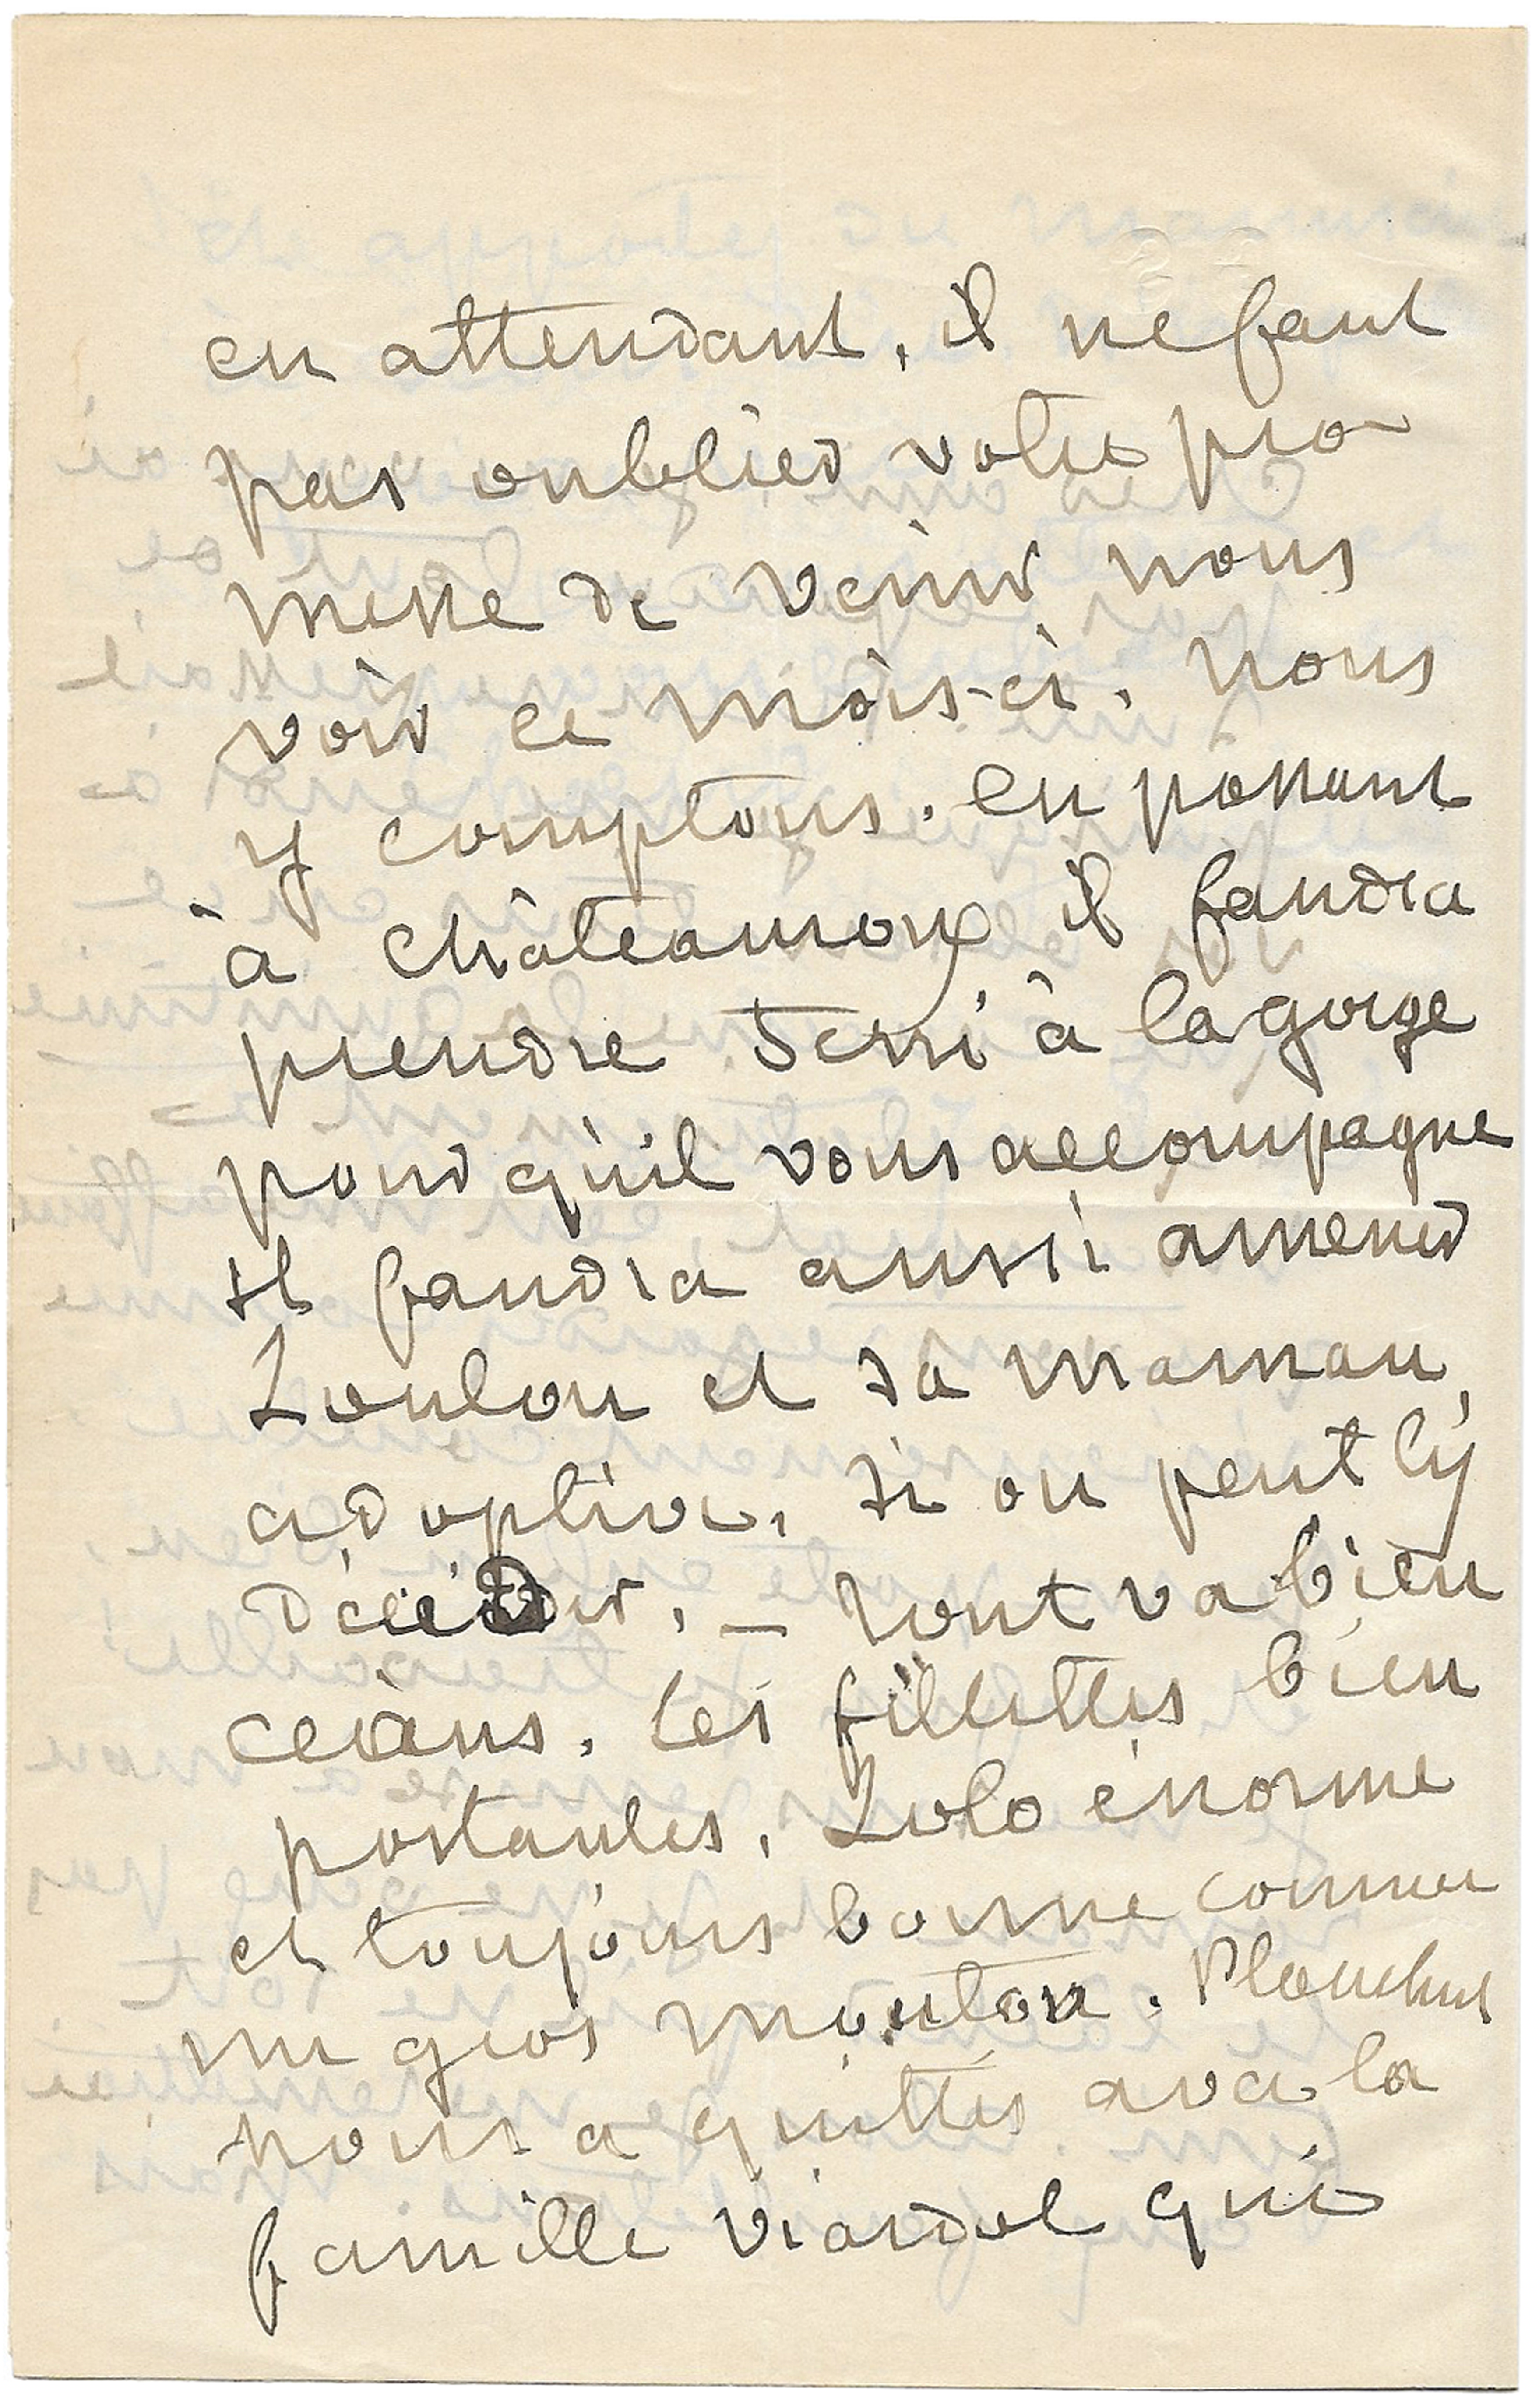 en attendant, il ne faut
pas oublier votre pro
messe de venir nous
voir ce mois-ci. Nous
y comptons. en passant
à Châteauroux, il faudra
prendre Ferri à la gorge
pour qu'il vous accompagne
il faudra aussi amener
Loulou et sa maman
adoptive, si on peut l'y
décider. — Tout va bien
céans. Les fillettes bien
portantes, Lolo énorme
et toujours bonne comme
un gros mouton. Plauchut
nous a quittés avec la
famille Viardot qui